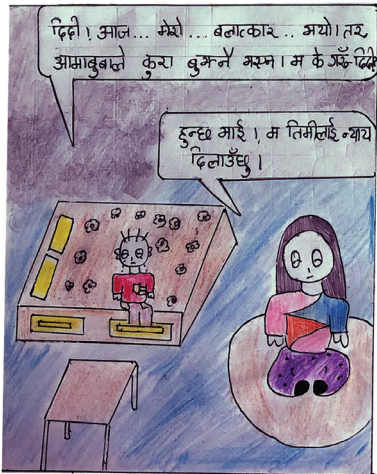 दिदी! आज... मेरो... बलात्कार.. भयो। तर
आमाबुबाले कुरा बुझ्नै भएन। म के गरूँ दिदी
हुन्छ भाई!, म तिमीलाई न्याय
दिलाउँछु।